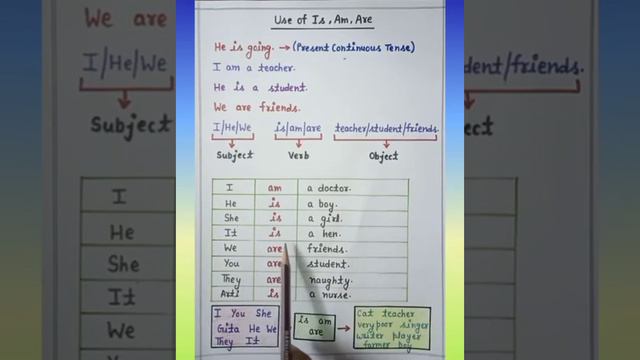 Use of Is, Am, Are
He is going. → (Present Continuous Tense)
I am a teacher.
He is a student.
We are friends.
I/He/We is/am/are teacher/student/friends.
Subject Verb Object
I am a doctor.
He is a boy.
She is a girl.
It is a hen.
We are friends.
You are student.
They are naughty.
Arti is a nurse.
I You She
Gita He We
They It
is am
are
→
Cat teacher
very poor singer
writer player
farmer boy
We are
I/He/We
Subject
I
He
She
It
We
dent/friends.